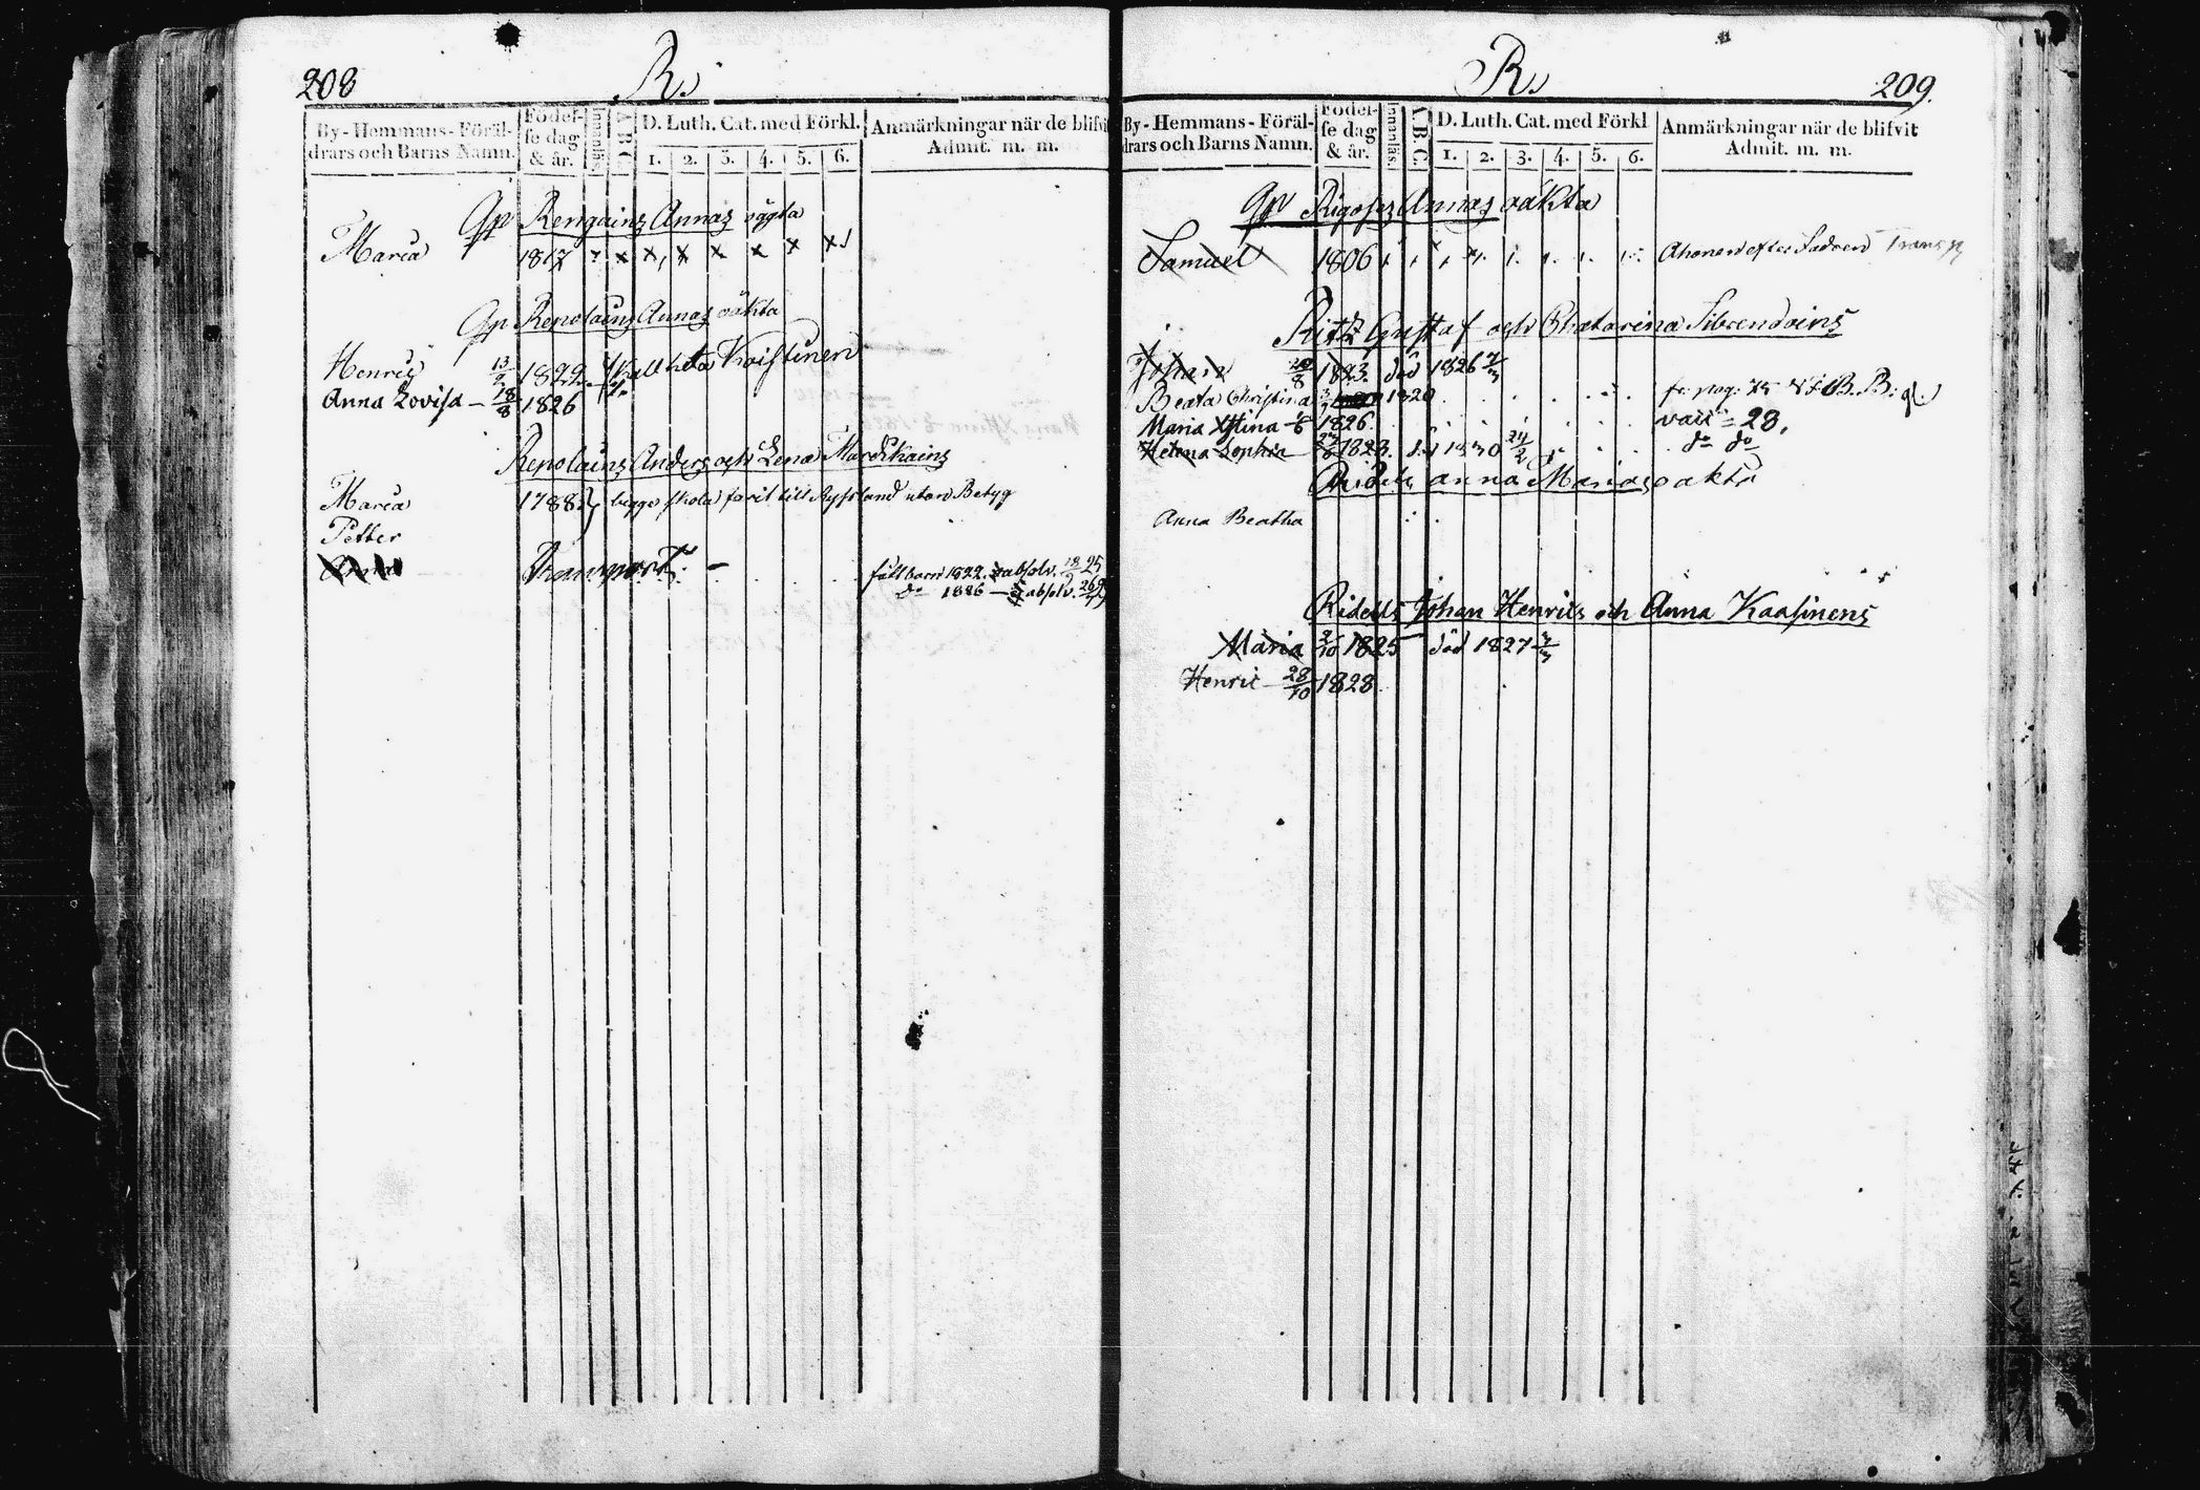 208
R.
By-Hemmans-Föräl-
drars och Barns Namn.
Födel-
se dag
& år.
Innanläs.
A.B.C.
D. Luth. Cat. med Förkl.
1. 2. 3. 4. 5. 6.
Anmärkningar när de blifvit
Admit. m. m.
Rengains Annas oägta
Maria 1817 x x x x x x x
Repolains Annas oäkta
Henric 1822 kallketa Koistinen
Anna Lovisa – 18/8 1826
Repolains Anders och Lena Mardikains
Maria 1788 begge skola farit till Ryssland utan Betyg
Petter
Transport. –
fält barn 1822. absolv. 18 25
do 1826 – absolv.
R.
209.
By-Hemmans-Föräl-
drars och Barns Namn.
Födel-
se dag
& år.
Innanläs.
A.B.C.
D. Luth. Cat. med Förkl
1. 2. 3. 4. 5. 6.
Anmärkningar när de blifvit
Admit. m. m.
Annas oäkta
Samuel 1806 Ahonen efter Fadren Transp
Ritz Gustaf och Chatarina Sihvendoins
Johan 1823. död 1826
Beata Christina 1820 fr. pag. 75
Maria Xstina 1826. = 28.
Helena Sophia 1828. död 1830 24/2 do do
Ridells anna Marias oakta
Anna Beatha
Ridells Johan Henrics och Anna Kaasinens
Maria 2/10 1825 död 1827
Henric 28/10 1828